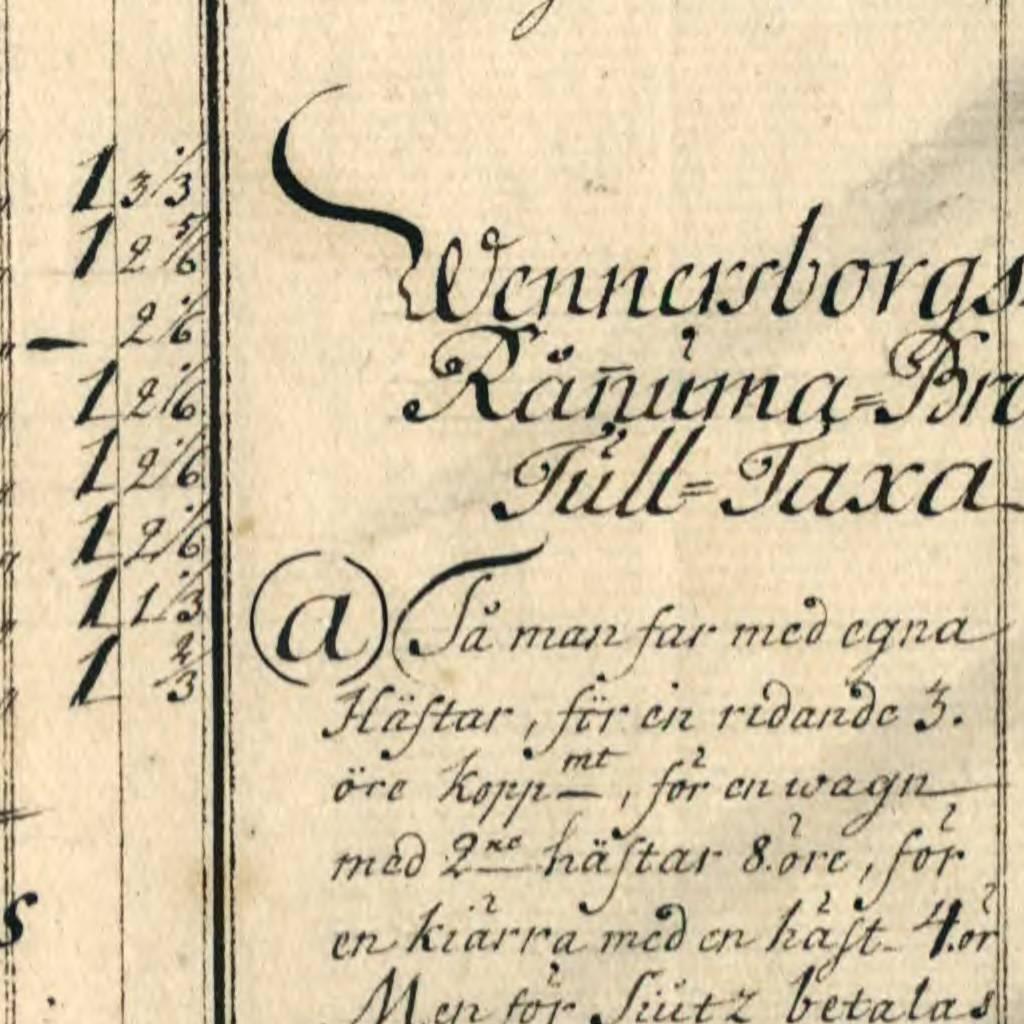 1 3 1/3
1 2 5/6
— 2 1/6
1 2 1/6
1 2 1/6
1 2 1/6
1 1 1/3
1 2/3
s
Wennersborgs
Rån̄uma=Bro
Tull=Taxa
a Då man far med egna
Häſtar, för en ridande 3.
öre kopp mt, för en wagn
med 2ne häſtar 8. öre, för
en kiärra med en häſt 4. ör
Men för ſiutz betalas